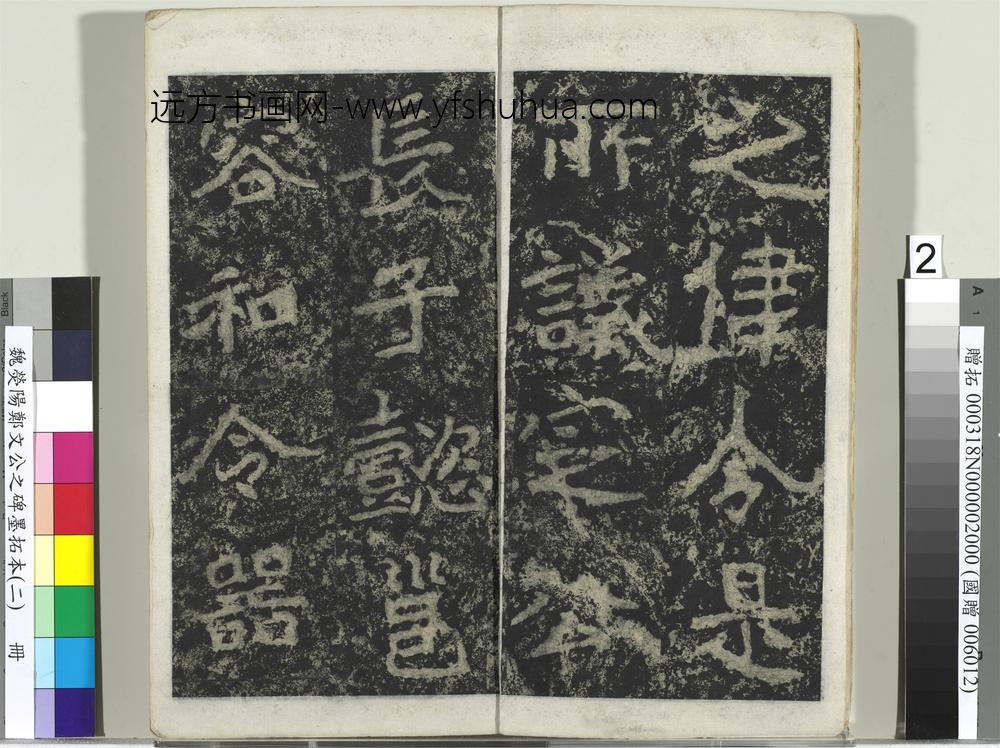 之律令是
所議定公
長子懿邕
容和令器
远方书画网-www.yfshuhua.com
魏滎陽鄭文公之碑墨拓本(二) 冊
2
贈拓 000318N000002000 (國贈 006012)
Black
A
1